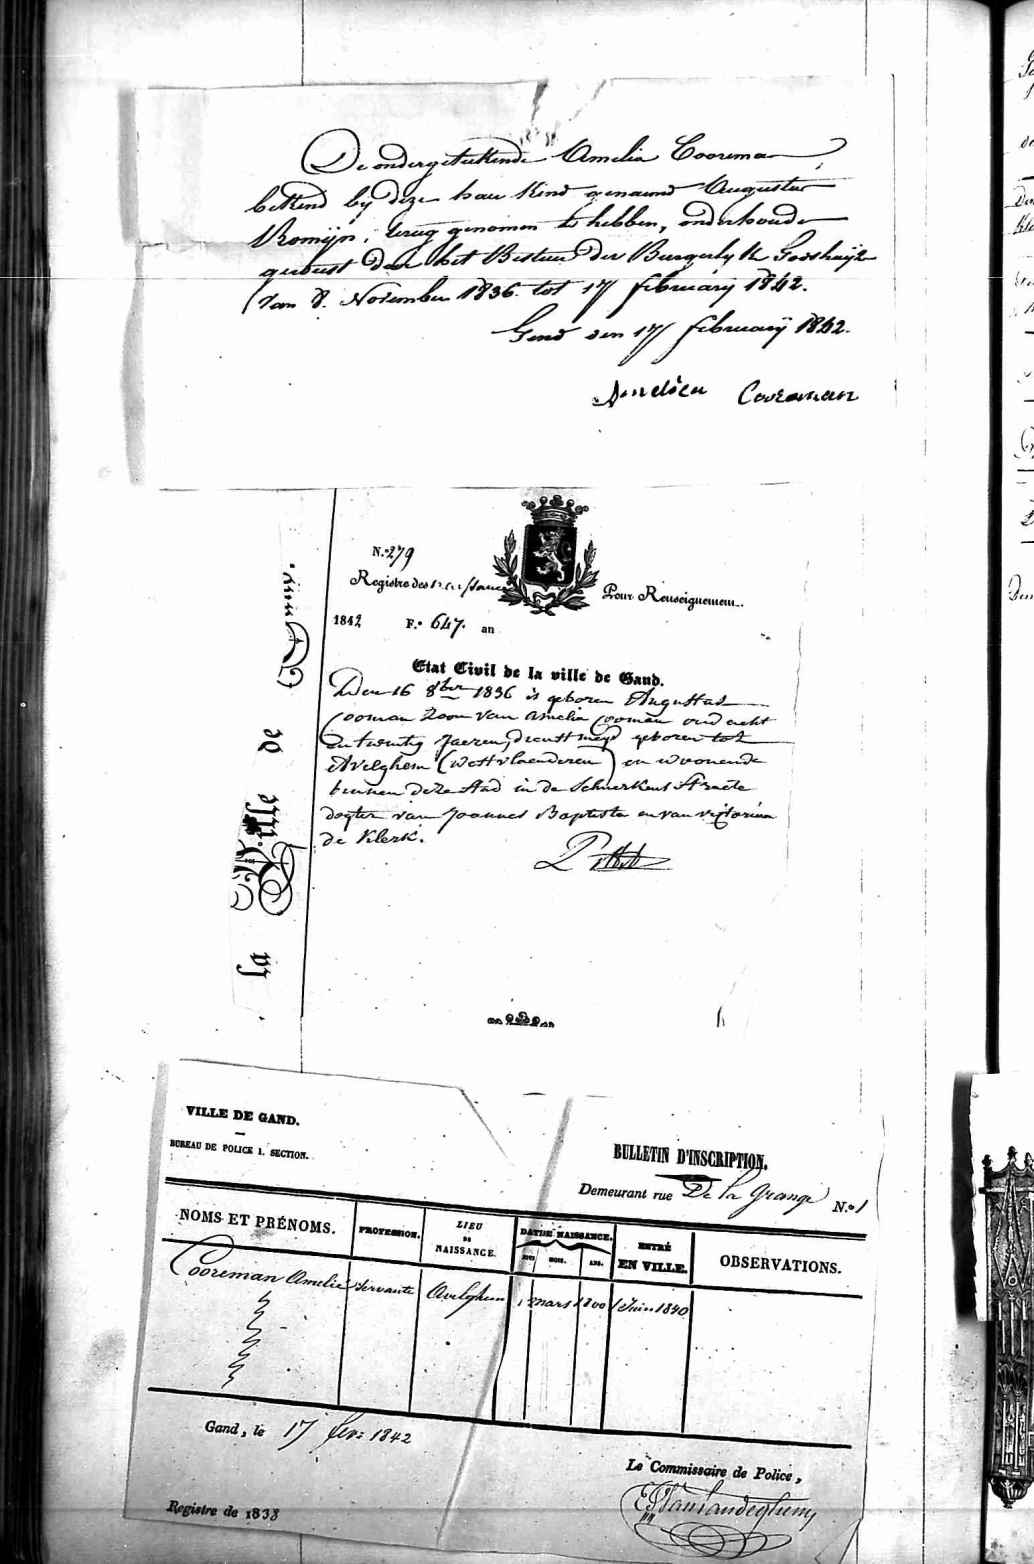 De ondergeteekende Amelia Cooreman
bekend by deze haar kind genaemd Augustus
Romijn, terug genomen te hebben, onderhouden
geweest door het Bestuur der Burgerlyke Godshuijzen
Van 8. November 1836 tot 17 february 1842.
Gend den 17 february 1842.
Cooreman
N.º 279
Registre des naissances
Pour Renseignemens.
1842 F.º 647. an
Etat Civil de la ville de Gand.
Den 16 8ber 1836 is geboren Augustus
Cooman Zoon van Amelia Cooman oud acht
en twentig Jaeren, dienstmeyd geboren tot
Avelghem (Westvlaenderen) en woonende
binnen deze Stad in de Straete
dogter van Joannes Baptista en van Victorina
de Klerk.
Ville de Gand.
VILLE DE GAND.
BUREAU DE POLICE 1. SECTION.
BULLETIN D'INSCRIPTION.
Demeurant rue De la Grange N.º 1
NOMS ET PRÉNOMS. PROFESSION. LIEU DE NAISSANCE. DATE DE NAISSANCE. ENTRÉ EN VILLE. OBSERVATIONS.
JOUR MOIS. ANS.
Cooreman Amelie Servante Avelghem 1 mars 1800 1 Juin 1840
Gand, le 17 fevr 1842
Le Commissaire de Police,
Registre de 1838